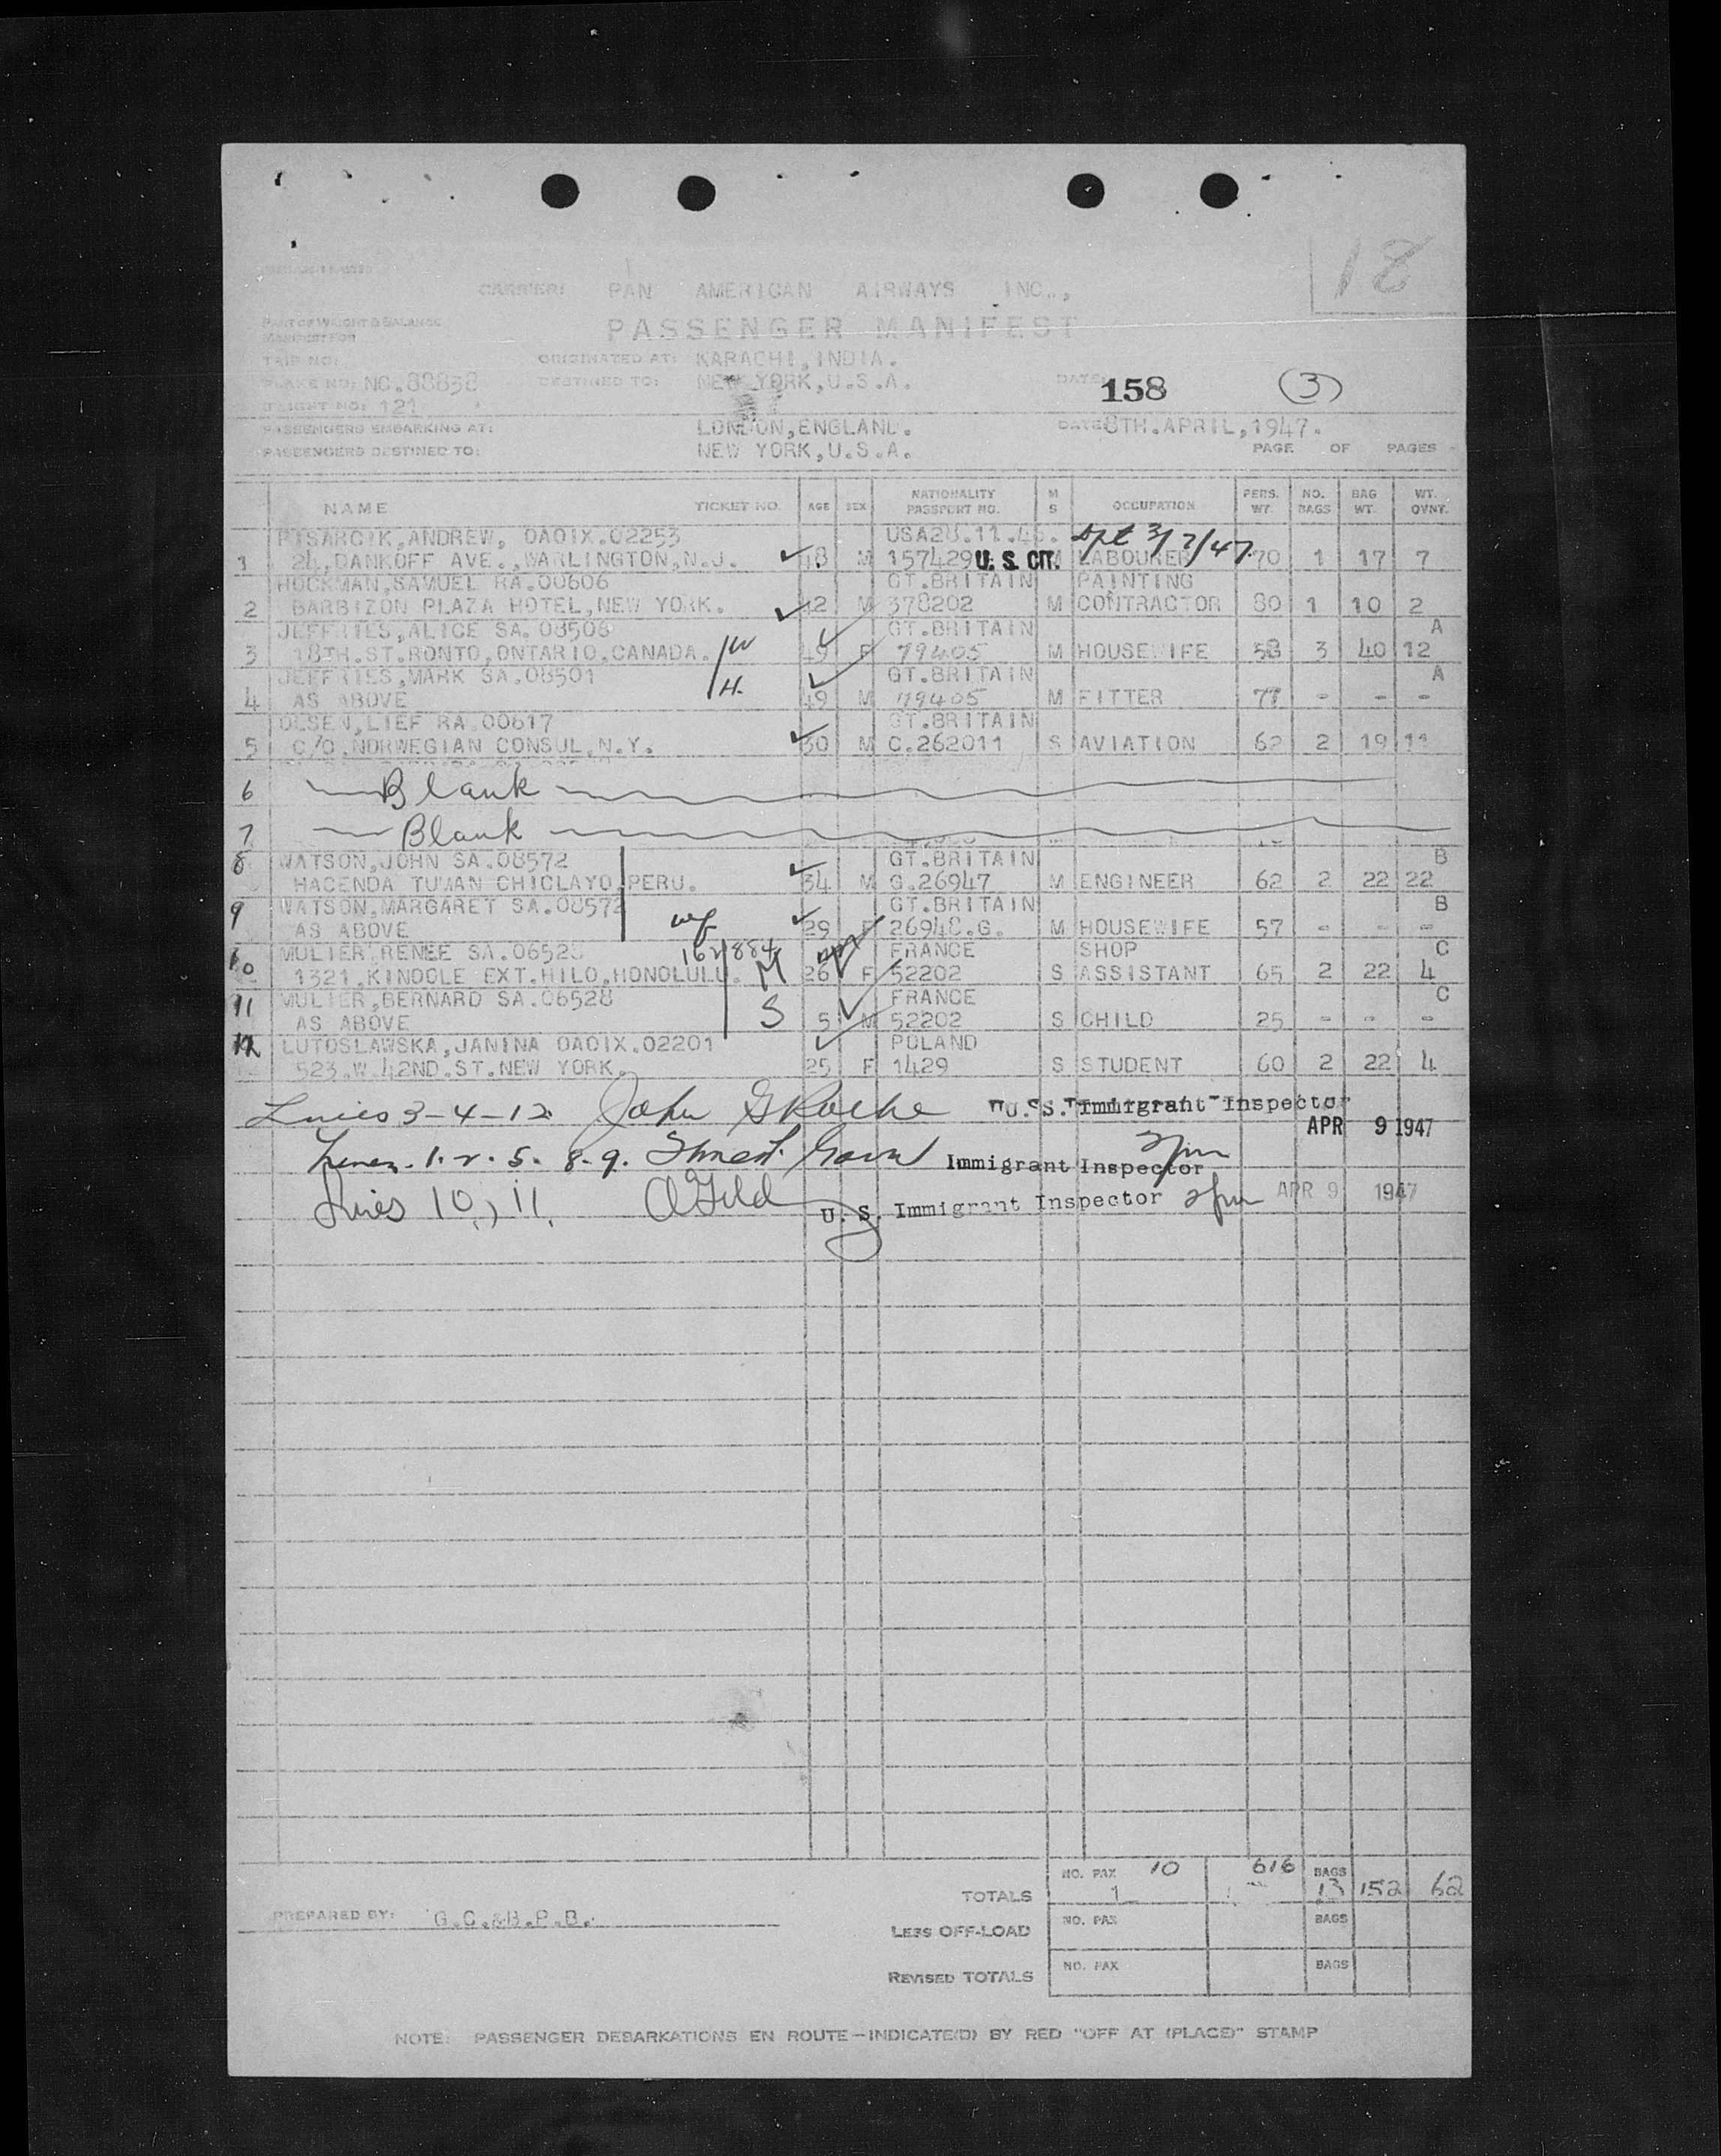 18
CARRIER: PAN AMERICAN AIRWAYS INC.,
PART OF WEIGHT & BALANCE
MANIFEST FOR
PASSENGER MANIFEST
TRIP NO:
ORIGINATED AT: KARACHI, INDIA.
PLANE NO: NC.88838 DESTINED TO: NEW YORK, U.S.A. DATE: 158 (3)
FLIGHT NO: 121
PASSENGERS EMBARKING AT: LONDON, ENGLAND. DATE 8TH. APRIL, 1947.
PASSENGERS DESTINED TO: NEW YORK, U.S.A. PAGE OF PAGES
NAME TICKET NO. AGE SEX NATIONALITY PASSPORT NO. M S OCCUPATION PERS. WT. NO. BAGS BAG WT. WT. OVNT.
PISARCIK, ANDREW, OAOIX.02253 USA 28.11.46.
1 24, DANKOFF AVE., WARLINGTON, N.J. 48 M 157429 U. S. CIT. M LABOURER 70 1 17 7
HOCKMAN, SAMUEL RA.00606 GT.BRITAIN PAINTING
2 BARBIZON PLAZA HOTEL, NEW YORK. 42 M 378202 M CONTRACTOR 80 1 10 2
JEFFRIES, ALICE SA.08500 GT.BRITAIN A
3 18TH.ST.RONTO, ONTARIO, CANADA. W 49 F 79405 M HOUSEWIFE 58 3 40 12
JEFFRIES, MARK SA.08501 GT.BRITAIN A
4 AS ABOVE H. 49 M 79405 M FITTER 77 - - -
OLSEN, LIEF RA.00617 GT.BRITAIN
5 C/O. NORWEGIAN CONSUL, N.Y. 30 M C.262011 S AVIATION 62 2 19 11
6 Blank
7 Blank
8 WATSON, JOHN SA.08572 GT.BRITAIN B
HACENDA TUMAN CHICLAYO, PERU. 34 M G.26947 M ENGINEER 62 2 22 22
9 WATSON, MARGARET SA.08572 GT.BRITAIN B
AS ABOVE wf 29 F 26948.G. M HOUSEWIFE 57 - - -
10 MULIER, RENEE SA.06528 162/884 FRANCE SHOP C
1321, KINOOLE EXT.HILO, HONOLULU. M 26 F 52202 S ASSISTANT 65 2 22 4
11 MULIER, BERNARD SA.06528 FRANCE C
AS ABOVE S 5 M 52202 S CHILD 25 - - -
12 LUTOSLAWSKA, JANINA OAOIX.02201 POLAND
523.W.42ND.ST.NEW YORK. 25 F 1429 S STUDENT 60 2 22 4
Lines 3-4-12 John G Roche U. S. Immigrant Inspector
APR 9 1947
Lines. 1. 2. 5. 8. 9. Immigrant Inspector 2pm
Lines 10, 11. U. S. Immigrant Inspector 2pm APR 9 1947
NO. PAX 10 616 BAGS
TOTALS 1 13 152 62
PREPARED BY: G.C.&H.P.B.
LESS OFF-LOAD NO. PAX BAGS
REVISED TOTALS NO. PAX BAGS
NOTE: PASSENGER DEBARKATIONS EN ROUTE—INDICATE(D) BY RED "OFF AT (PLACE)" STAMP